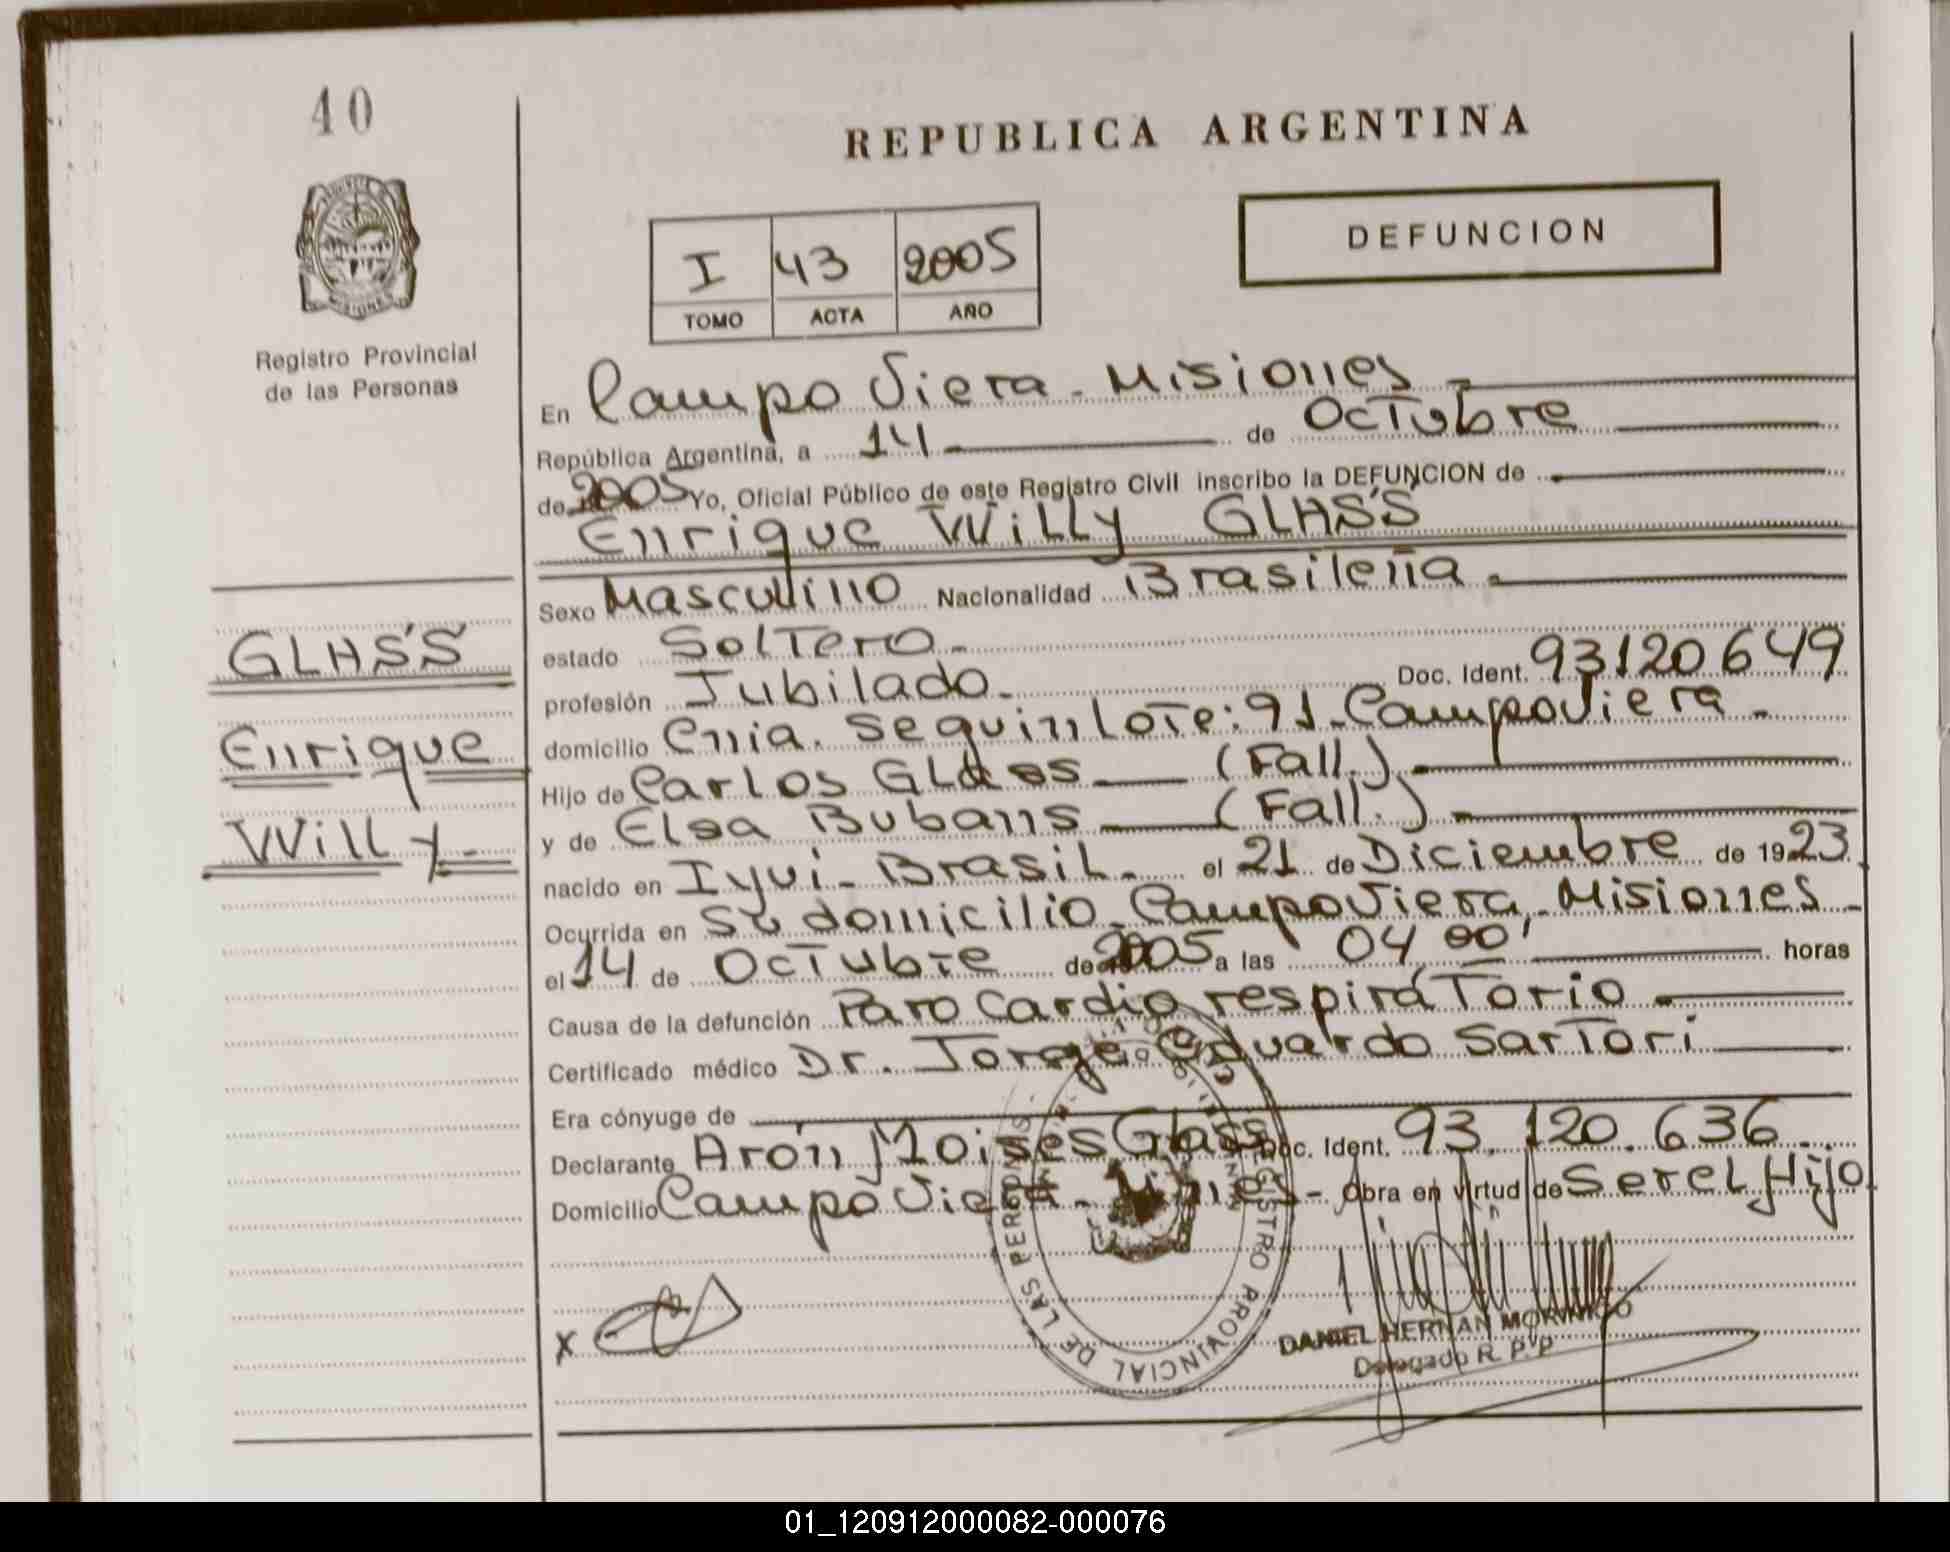 40
REPUBLICA ARGENTINA
DEFUNCION
I 43 2005
TOMO ACTA AÑO
Registro Provincial
de las Personas
En Campo Viera - Misiones -
República Argentina, a 14 de Octubre
de 2005 Yo, Oficial Público de este Registro Civil inscribo la DEFUNCION de
Enrique Willy GLASS
Sexo Masculino Nacionalidad Brasileña.
estado Soltero.
profesión Jubilado. Doc. Ident. 93120649
domicilio Cnia. Seguin Lote: 91 - Campo Viera -
Hijo de Carlos Glass (Fall.)
y de Elsa Bubans (Fall.)
nacido en Iyui - Brasil. el 21 de Diciembre de 1923
Ocurrida en Su domicilio - Campo Viera - Misiones -
el 14 de Octubre de 2005 a las 04 00' horas
Causa de la defunción Paro Cardio respiratorio.
Certificado médico Dr. Jorge Eduardo Sartori
Era cónyuge de
Declarante Arón Moisés Glass Doc. Ident. 93.120.636.
Domicilio Campo Viera - Mnes - Obra en virtud de Ser el Hijo
GLASS
Enrique
Willy -
x
REGISTRO PROVINCIAL DE LAS PERSONAS
DANIEL HERNAN MORINIGO
Delegado R. P. P
01_120912000082-000076